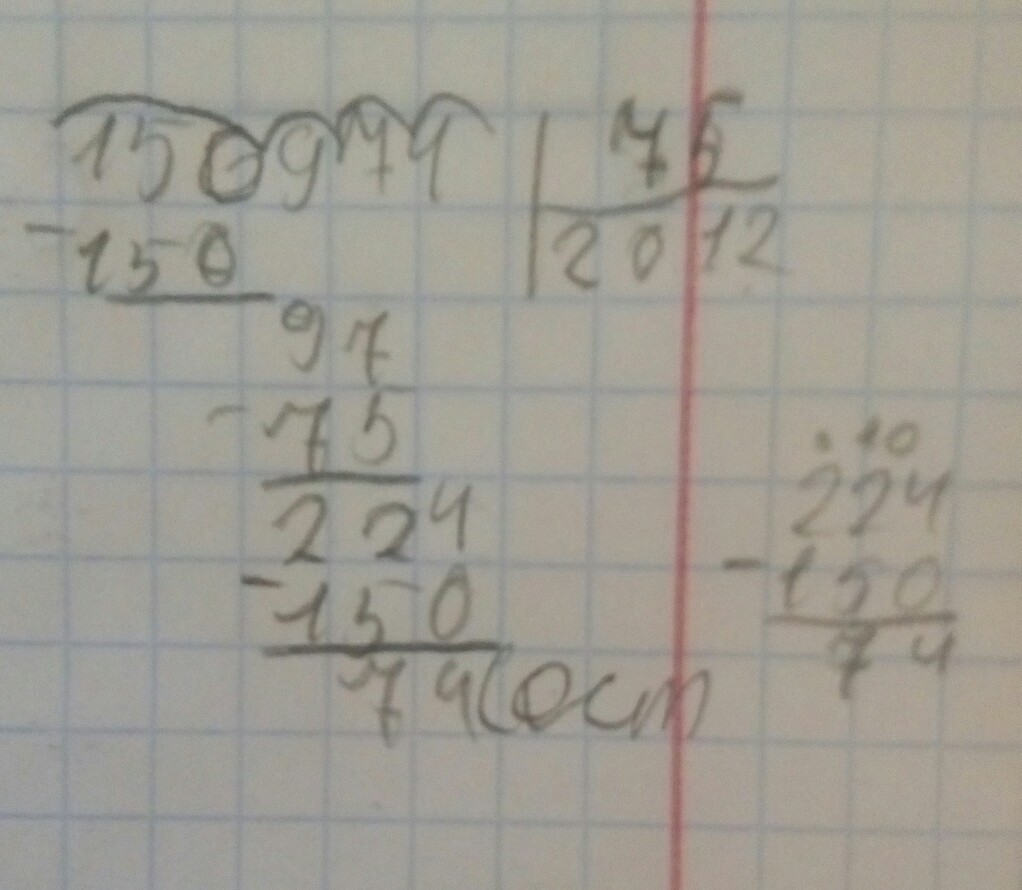 150974 75
- 150 2012
97
- 75
224
- 150
74(ост
10
224
- 150
74